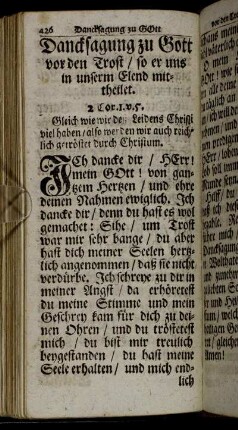 426 Dancksagung zu GOtt
Dancksagung zu Gott
vor den Trost / so er uns
in unserm Elend mit-
theilet.
2 Cor. I. v. 5.
Gleich wie wir des Leidens Christi
viel haben / also werden wir auch reich-
lich getröstet durch Christum.
ICh dancke dir / HErr!
mein GOtt! von gan-
tzem Hertzen / und ehre
deinen Nahmen ewiglich. Ich
dancke dir / denn du hast es wol
gemachet: Sihe / um Trost
war mir sehr bange / du aber
hast dich meiner Seelen hertz-
lich angenommen / daß sie nicht
verdürbe. Ich schreye zu dir in
meiner Angst / da erhöretest
du meine Stimme und mein
Geschrey kam für dich zu dei-
nen Ohren / und du tröstetest
mich / du bist mir treulich
beygestanden / du hast meine
Seele erhalten / und mich end-
lich